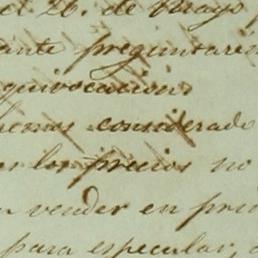 el 26. de Mayo,
ante preguntaré
quivocacion
hemos considerado
los precios no
vender en pri
para especular,